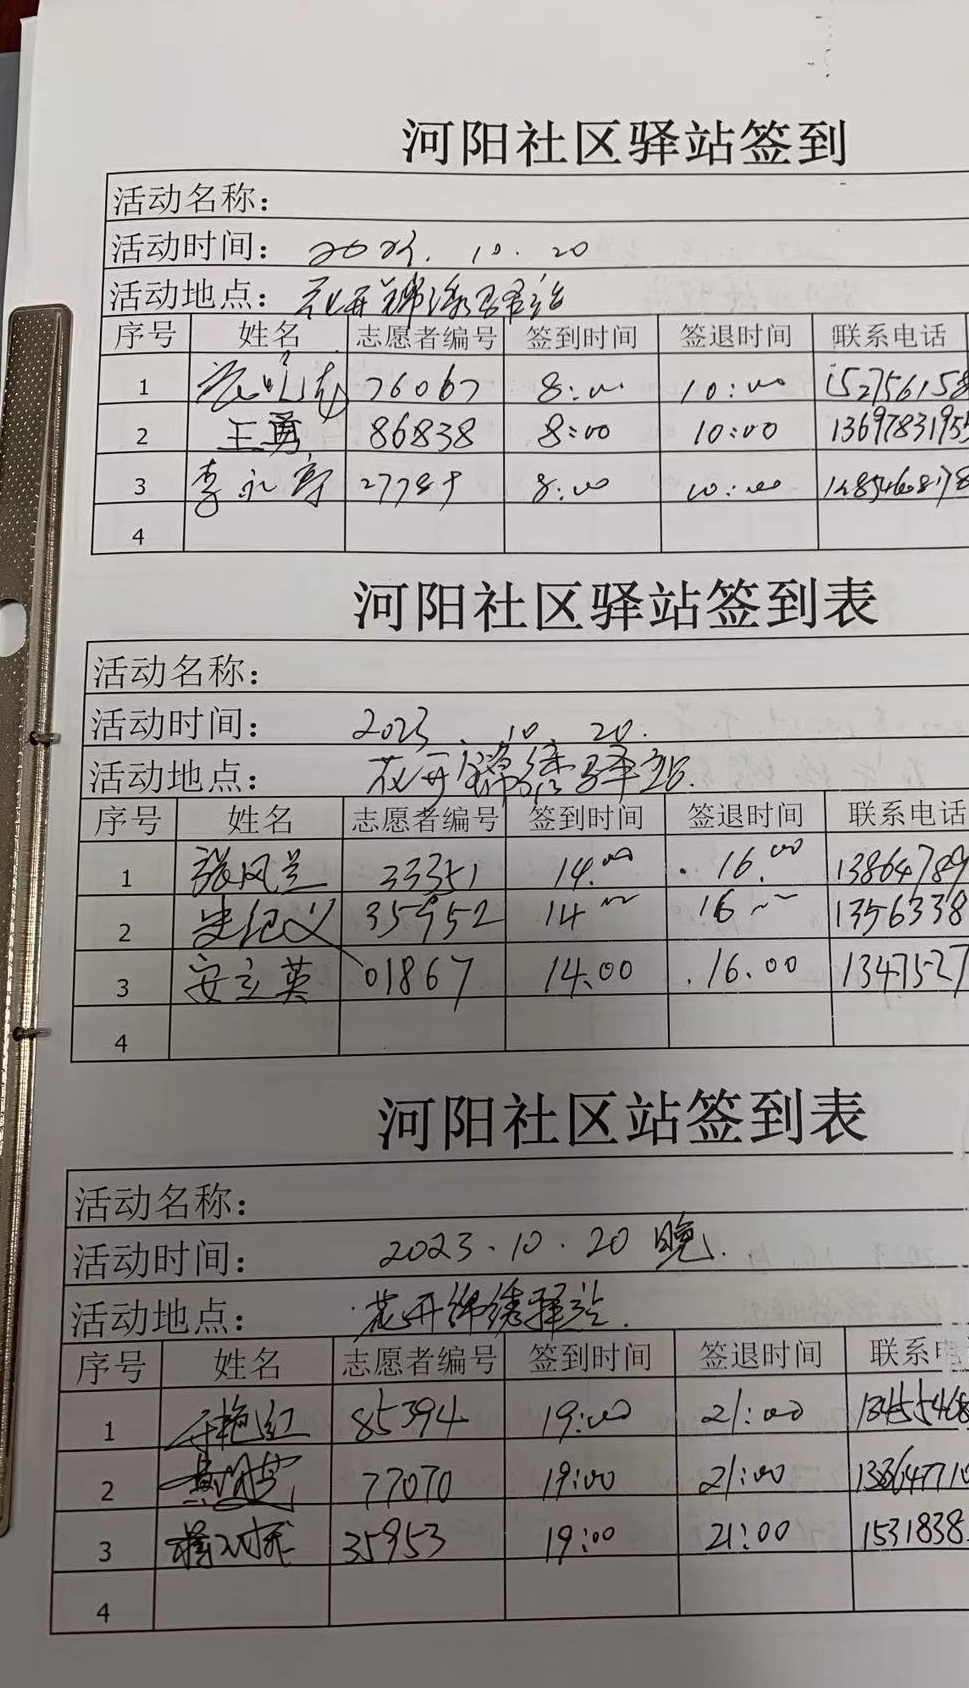 河阳社区驿站签到
活动名称：
活动时间： 2023. 10. 20
活动地点： 花开锦绣驿站
序号 姓名 志愿者编号 签到时间 签退时间 联系电话
1 76067 8:00 10:00 152756158
2 王勇 86838 8:00 10:00 13697831955
3 李永 8:00 10:00
4
河阳社区驿站签到表
活动名称：
活动时间： 2023. 10. 20.
活动地点： 花开锦绣驿站.
序号 姓名 志愿者编号 签到时间 签退时间 联系电话
1 张风兰 33351 14.00 16.00 13864789
2 史纪义 35952 14 16 1356338
3 安立英 01867 14.00 16.00 1347527
4
河阳社区站签到表
活动名称：
活动时间： 2023.10.20 晚.
活动地点： 花开锦绣驿站.
序号 姓名 志愿者编号 签到时间 签退时间 联系电
1 艳红 85394 19:00 21:00 13455468
2 77070 19:00 21:00
3 35953 19:00 21:00 1531838
4